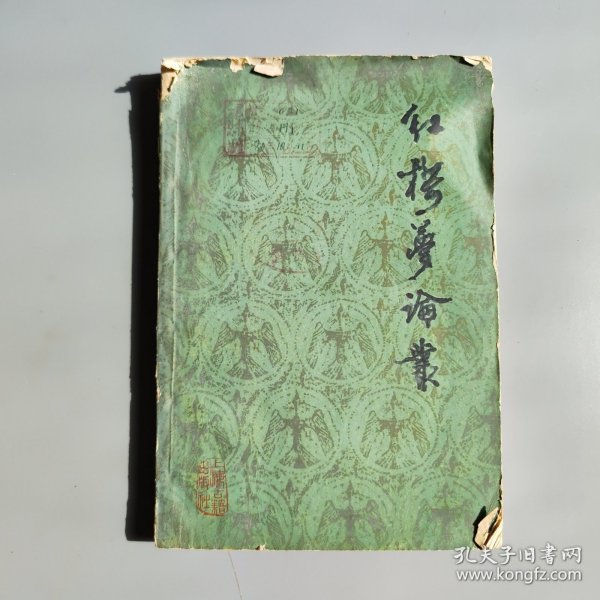 红楼梦论丛
上海古籍
出版社
孔夫子旧书网
www.kongfz.com